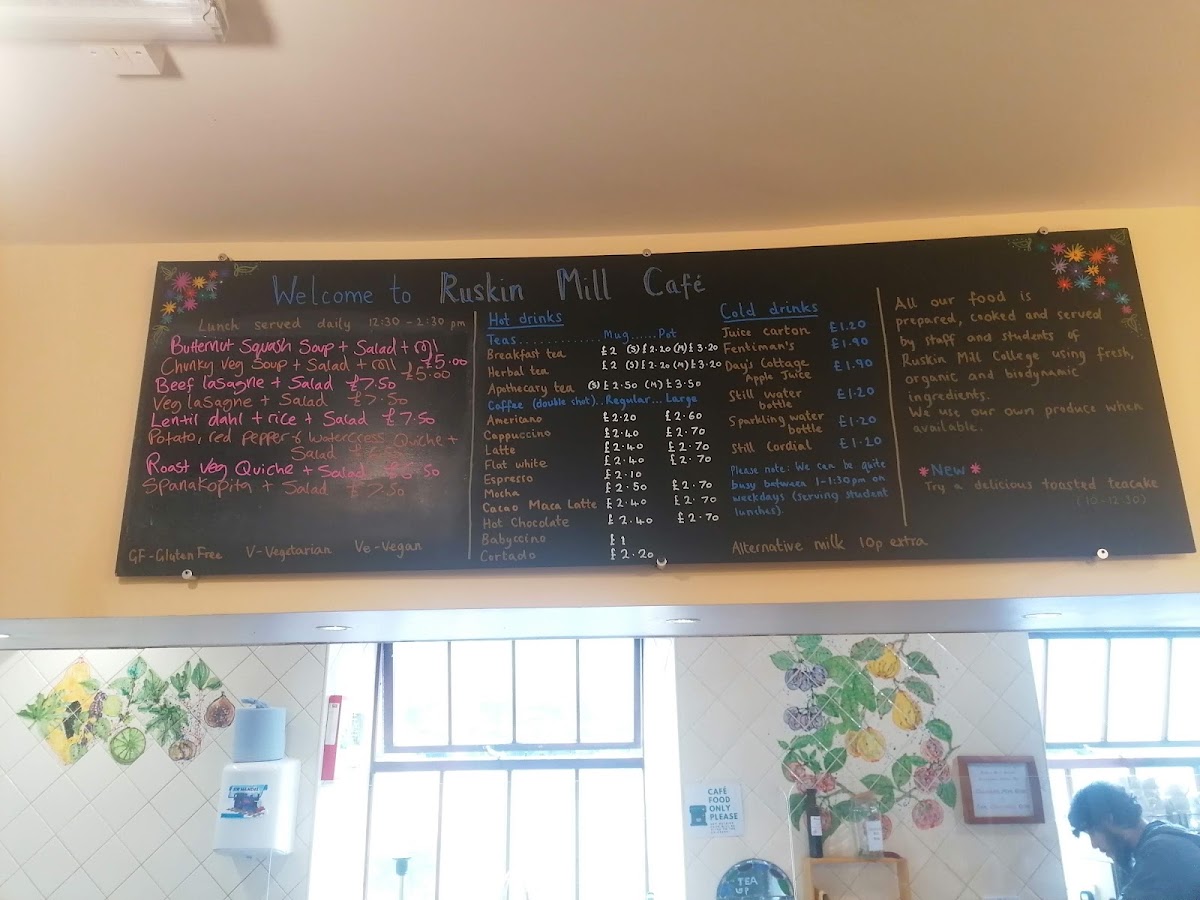 Welcome to Ruskin Mill Café
Lunch served daily 12:30 - 2:30 pm
Butternut Squash Soup + Salad +
£5.00
Chunky Veg Soup + Salad +
£5.00
Beef lasagne + Salad £7.50
Veg lasagne + Salad £7.50
Lentil dahl + rice + Salad £7.50
Potato, red pepper & Watercress Quiche +
Salad
Roast Veg Quiche + Salad £6.50
Spanakopita + Salad £7.50
GF-Gluten Free V-Vegetarian Ve-Vegan
Hot drinks
Teas..............Mug......Pot
Breakfast tea £2 (S) £2.20 (M) £3.20
Herbal tea £2 (S) £2.20 (M) £3.20
Apothecary tea (S) £2.50 (M) £3.50
Coffee (double shot)..Regular...Large
Americano £2.20 £2.60
Cappuccino £2.40 £2.70
Latte £2.40 £2.70
Flat white £2.40 £2.70
Espresso £2.10
Mocha £2.50 £2.70
Cacao Maca Latte £2.40 £2.70
Hot Chocolate £2.40 £2.70
Babyccino £1
Cortado £2.20
Cold drinks
Juice carton £1.20
Fentiman's £1.90
Day's Cottage
Apple Juice £1.90
Still water
bottle £1.20
Sparkling water
bottle £1.20
Still cordial £1.20
Please note: We can be quite
busy between 1-1:30pm on
weekdays (serving student
lunches)
Alternative milk 10p extra
All our food is
prepared, cooked and served
by staff and students of
Ruskin Mill College using fresh,
organic and biodynamic
ingredients.
We use our own produce when
available.
*NEW*
Try a delicious toasted teacake
(10-12:30)
CAFÉ
FOOD
ONLY
PLEASE
TEA